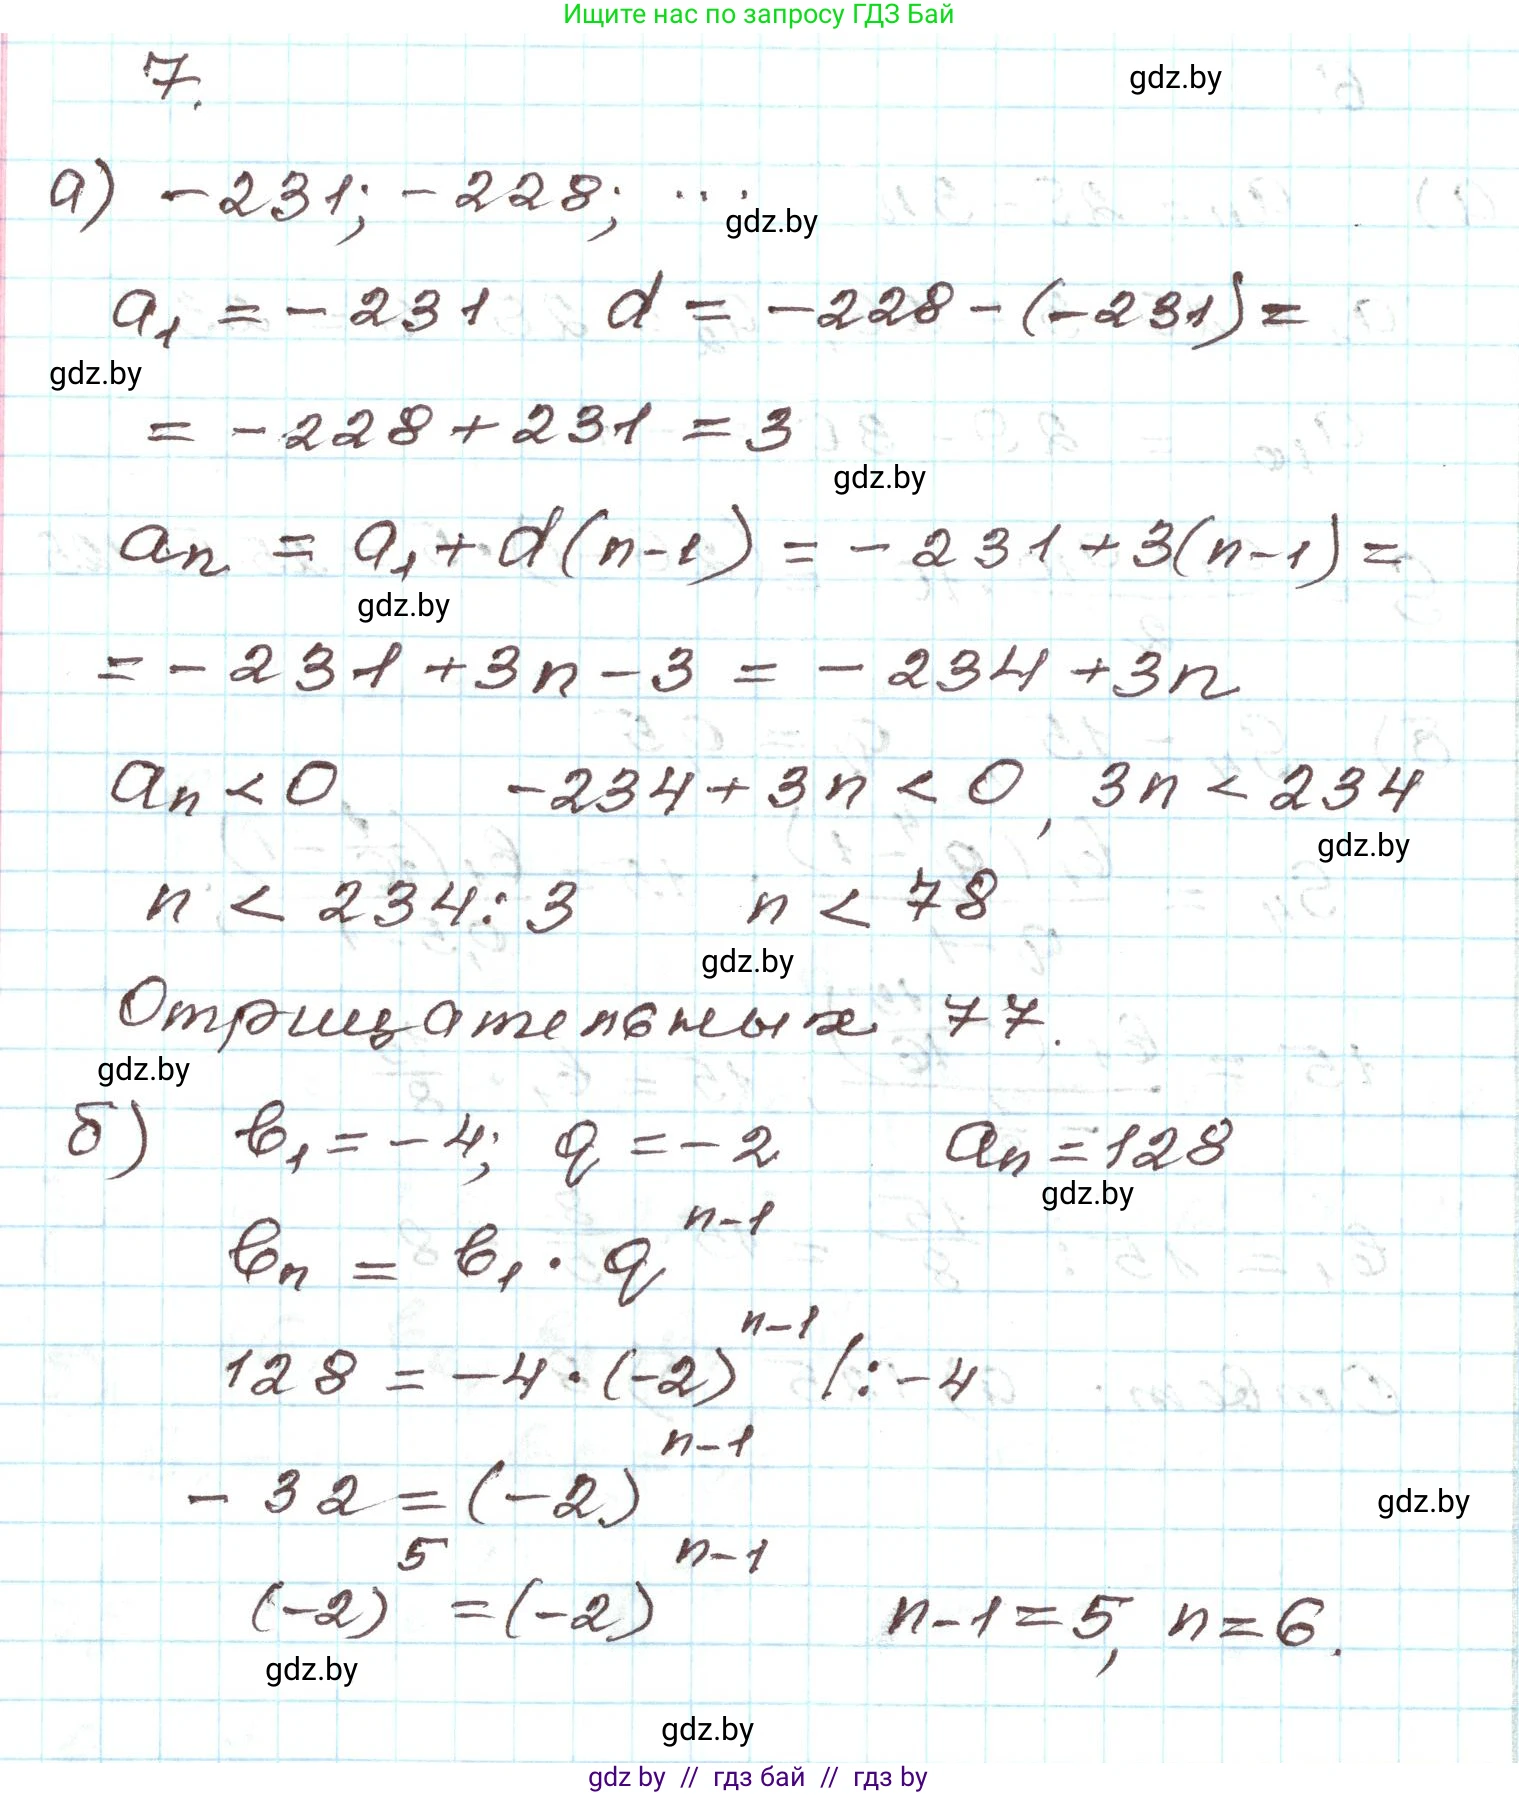 Ищите нас по запросу ГДЗ Бай
7.
gdz.by
а) -231; -228; ...
gdz.by
a₁ = -231 d = -228 - (-231) =
gdz.by
= -228 + 231 = 3
gdz.by
aₙ = a₁ + d(n-1) = -231 + 3(n-1) =
gdz.by
= -231 + 3n - 3 = -234 + 3n
aₙ < 0 -234 + 3n < 0, 3n < 234
gdz.by
n < 234 : 3 n < 78
gdz.by
Отрицательных 77.
gdz.by
б) b₁ = -4; q = -2 aₙ = 128
gdz.by
bₙ = b₁ · qⁿ⁻¹
128 = -4 · (-2)ⁿ⁻¹ /: -4
-32 = (-2)ⁿ⁻¹
gdz.by
(-2)⁵ = (-2)ⁿ⁻¹ n-1 = 5, n = 6.
gdz.by
gdz.by
gdz by // гдз бай // гдз by